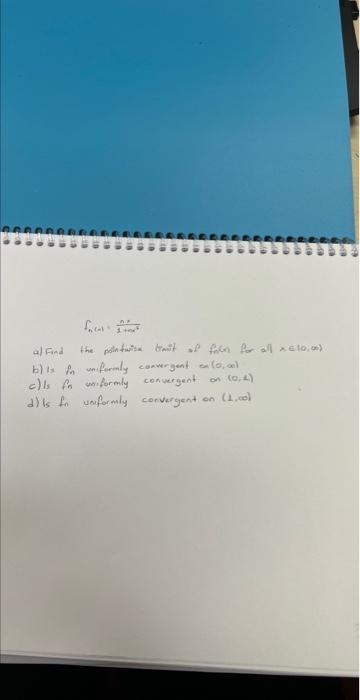 fn(x) = nx / 1+nx²
a) Find the pointwise limit of fn(x) for all x ∈ (0,∞)
b) Is fn uniformly convergent on (0,∞)
c) Is fn uniformly convergent on (0,1)
d) Is fn uniformly convergent on (1,∞)